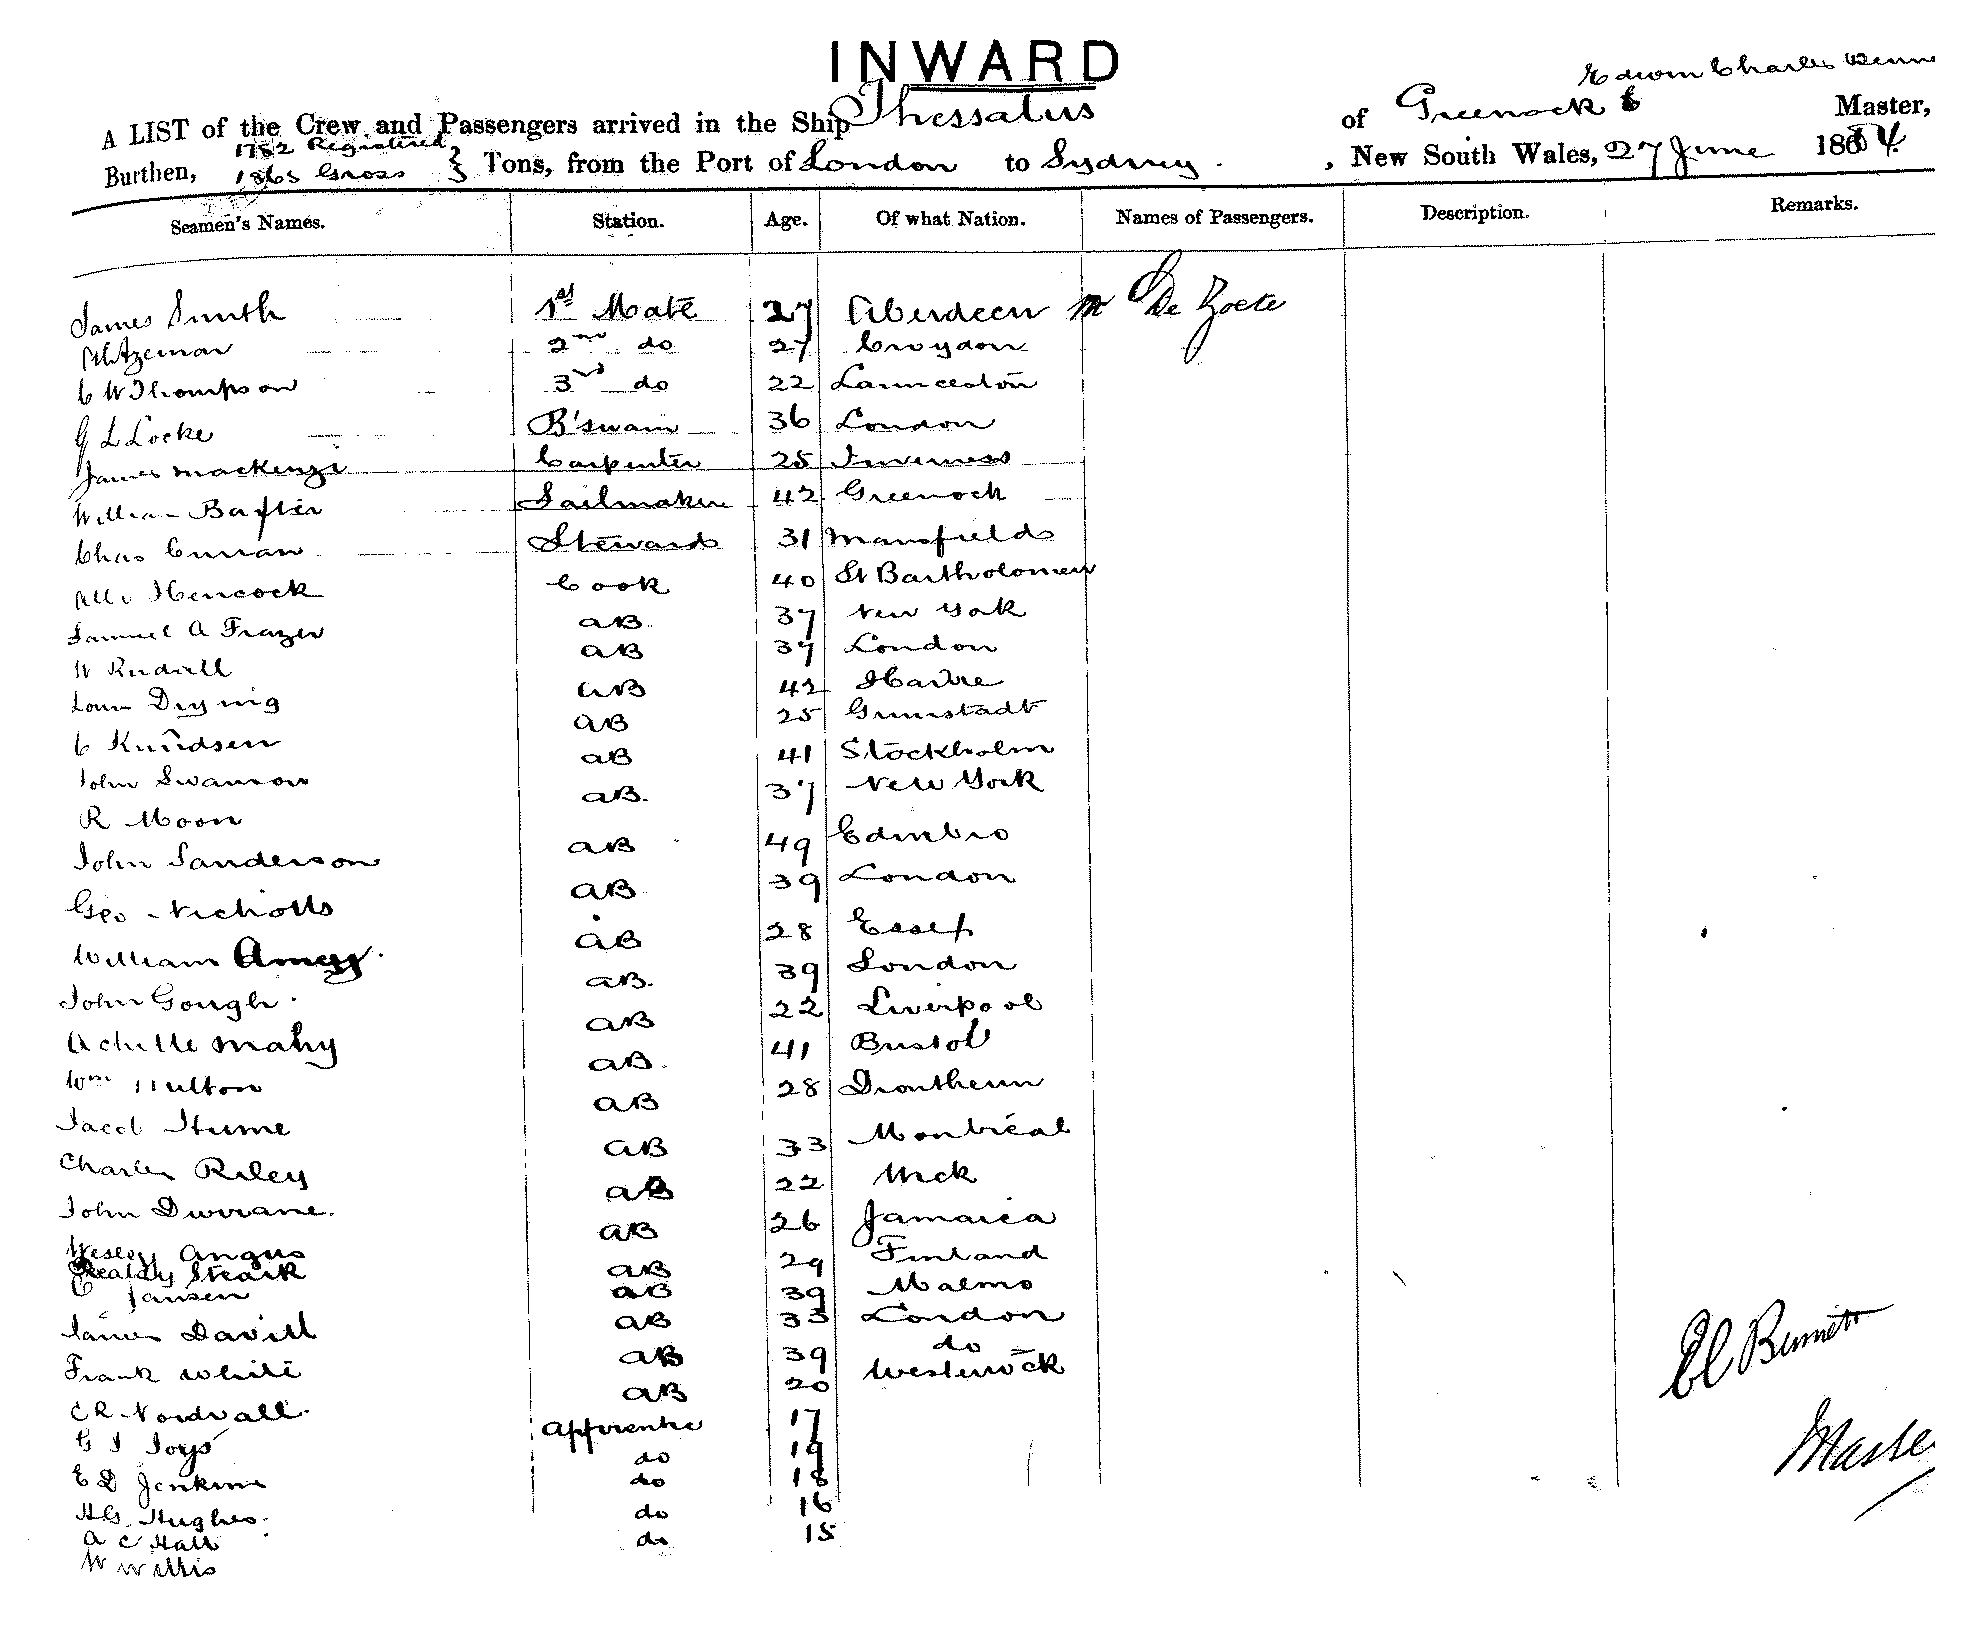 INWARD
Edwin Charles
A LIST of the Crew and Passengers arrived in the Ship Thessalus of Greenock Master,
Burthen, 1782 Registered 1865 Gross } Tons, from the Port of London to Sydney. , New South Wales, 27 June 1884.
Seamen's Names. Station. Age. Of what Nation. Names of Passengers. Description. Remarks.
James Smith 1st Mate 27 Aberdeen Mr De Zoete
2nd do 27 Croydon
C W Thompson 3rd do 22 Launceston
G L Locke B'swain 36 London
James Mackenzie Carpenter 25 Inverness
William Baxter Sailmaker 42 Greenock
Chas Curran Steward 31 Mansfield
Hencock Cook 40 St Bartholomew
Samuel A Frazer AB 37 New York
W Rudvall AB 37 London
Louis AB 42 Havre
C Knudsen AB 25 Grimstadt
John Swanson AB 41 Stockholm
R Moon AB. 37 New York
John Sanderson AB 49 Edinbro
Geo Nicholls AB 39 London
William AB 28 Essex
John Gough AB. 39 London
Achille Mahy AB 22 Liverpool
Wm Hulton AB. 41 Bristol
Jacob Hume AB 28 Drontheim
Charles Riley AB 33 Montreal
John Durrane. AB 22 Wick
Wesley Angus AB 26 Jamaica
Steark AB 29 Finland
C Jansen AB 39 Malmo
James Davill AB 33 London
Frank White AB 39 do
C R Nordvall. AB 20 Westerwick
G J Joys Apprentice 17
E D Jenkins do 19
H G Hughes. do 18
A C Hall do 16
W Willis do 15
E C Bennett
Master